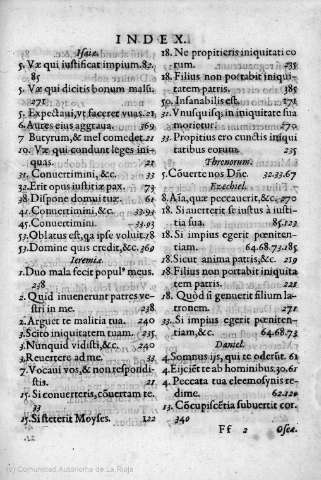 INDEX.
Isaiæ.
5. Væ qui iustificat impium. 82.
85
5. Væ qui dicitis bonum malũ.
271
5. Expectaui, vt faceret vuas. 21
6. Aures eius aggraua. 369
7 Butyrum, & mel comedet. 21
10. Væ qui condunt leges iniquas. 21
31. Conuertimini, &c. 33
32. Erit opus iustitiæ pax. 73
38 Dispone domui tuæ. 61
41. Conuertimini &c. 33.93
45. Conuertimini. 33.93
53. Oblatus est, qa ipse voluit. 28
53. Domine quis credit, &c. 369
Ieremiæ.
1. Duo mala fecit popul⁹ meus.
238
2. Quid inuenerunt patres vestri in me. 238
2. Arguet te malitia tua. 240
3. Scito iniquitatem tuam. 235
3. Nunquid vidisti, &c. 240
3. Reuertere ad me. 33
7. Vocaui vos, & non respondistis. 21
15. Si conuerteris, cõuertam te.
33
15. Si steterit Moyses. 122
18. Ne propitieris iniquitati eorum. 235
18. Filius non portabit iniquitatem patris. 385
30. Insanabilis est. 171
31. Vnusquisq; in iniquitate sua morietur. 170
33. Propitius ero cunctis iniquitatibus eorum. 235
Threnorum.
5. Cõuerte nos Dñe. 32.33.67
Ezechiel.
8. Aĩa, quæ peccauerit, &c. 270
18. Si auerterit se iustus à iustitia sua. 85.123
18. Si impius egerit pœnitentiam. 64.68.73.185
18. Sicut anima patris, &c. 219
18 Filius non portabit iniquitatem patri. 228
18. Quòd si genuerit filium latronem. 271
33. Si impius egerit pœnitentiam, &c. 64.68.73
Daniel.
4. Somnus ijs, qui te oderũt. 61
4. Eijciẽt te ab hominibus. 30.61
4. Peccata tua eleemosynis redime. 62.120
13. Cõcupiscẽtia subuertit cor.
340
Ff 2 Oseæ.
(c) Comunidad Autónoma de La Rioja